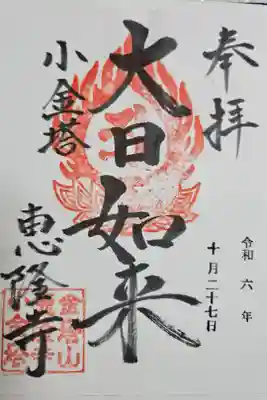 奉拝
令和六年
十月二十七日
大日如来
小金塔
恵隆寺